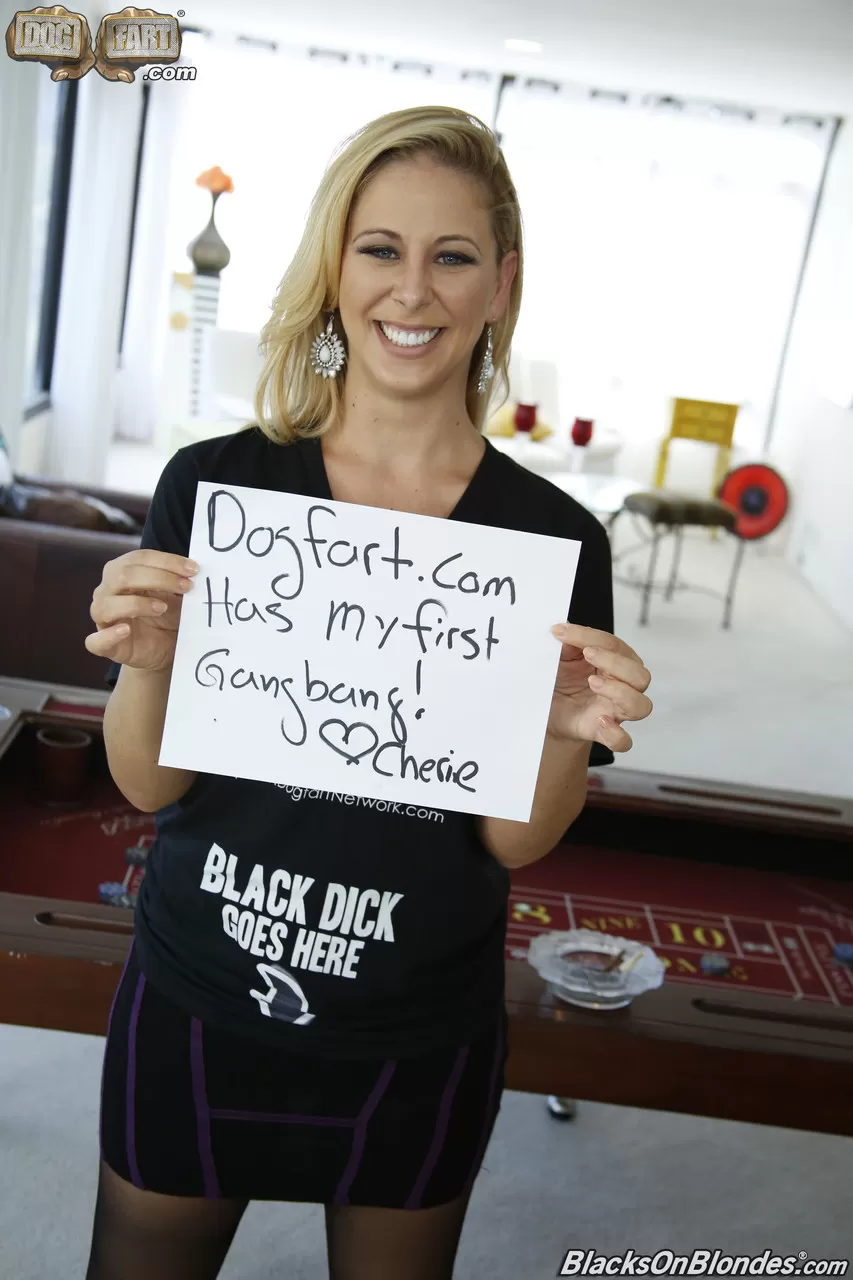 DOG FART
.com
Dogfart.Com
Has My first
Gangbang!
Cherie
ogfartNetwork.com
BLACK DICK
GOES HERE
NINE
10
BlacksOnBlondes.com